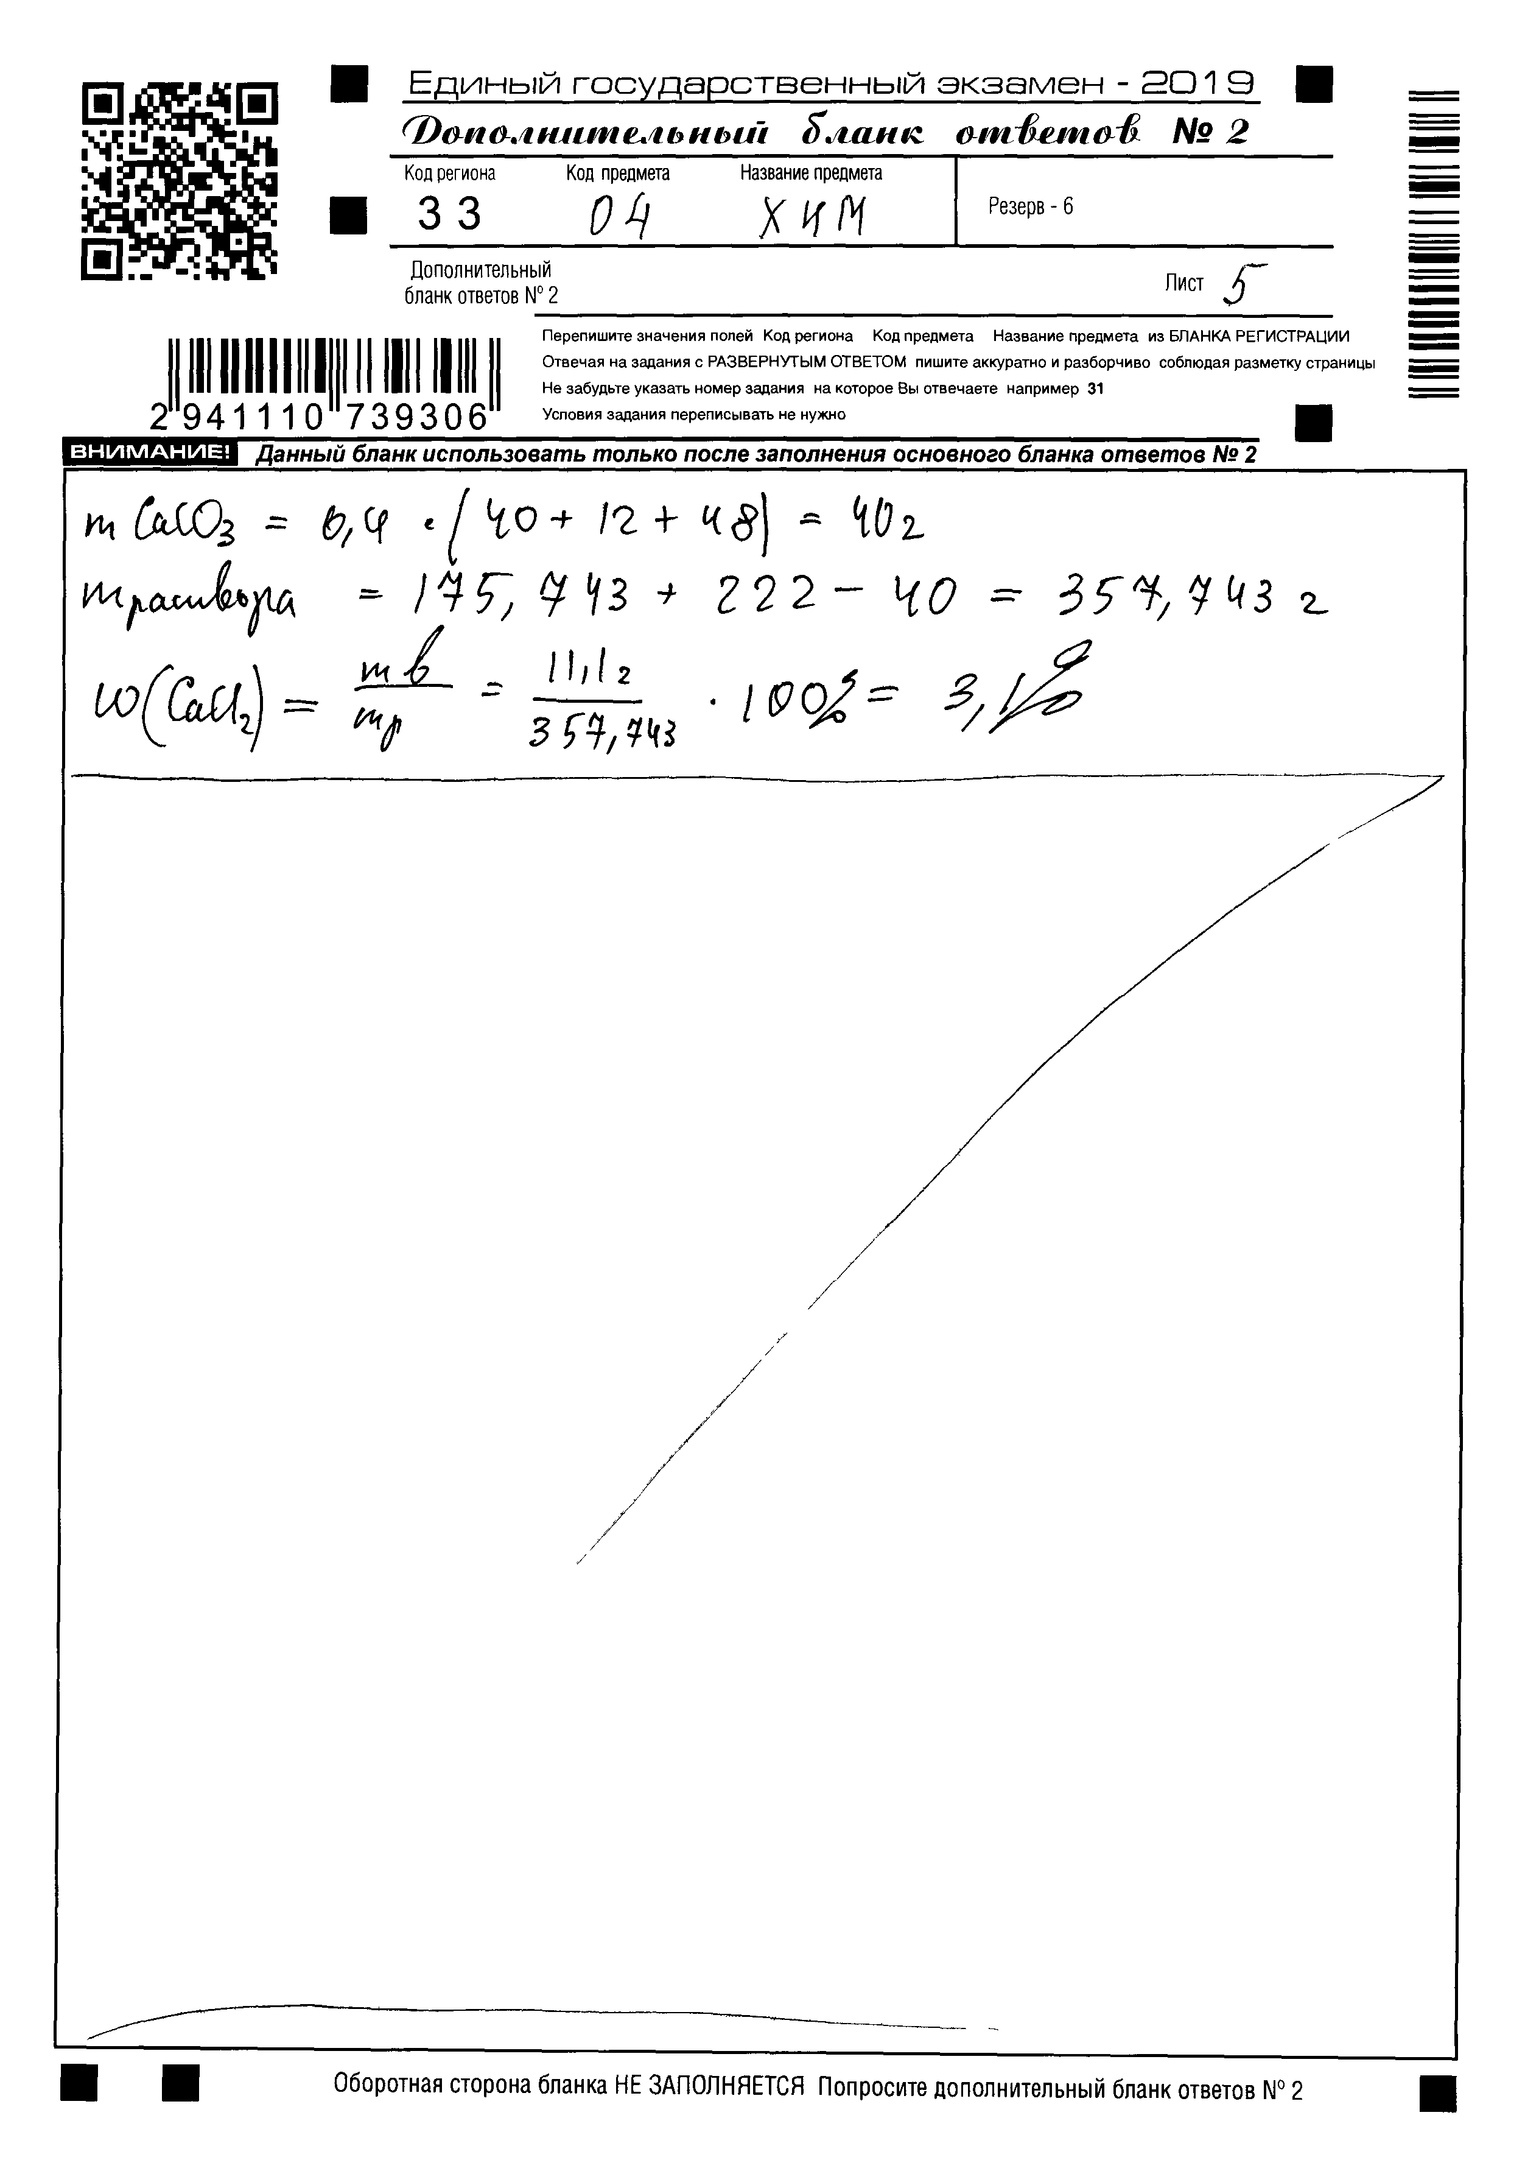 Единый государственный экзамен - 2019
Дополнительный бланк ответов № 2
Код региона Код предмета Название предмета
33 04 ХИМ
Резерв - 6
Дополнительный
бланк ответов № 2
Лист 5
Перепишите значения полей Код региона Код предмета Название предмета из БЛАНКА РЕГИСТРАЦИИ
Отвечая на задания с РАЗВЕРНУТЫМ ОТВЕТОМ пишите аккуратно и разборчиво соблюдая разметку страницы
Не забудьте указать номер задания на которое Вы отвечаете например 31
Условия задания переписывать не нужно
2 941110 739306
ВНИМАНИЕ! Данный бланк использовать только после заполнения основного бланка ответов № 2
m CaCO3 = 0,4 · (40 + 12 + 48) = 40 г
m раствора = 175,743 + 222 - 40 = 357,743 г
ω(CaCl2) = mв/mр = 11,1 г/357,743 · 100% = 3,1%
Оборотная сторона бланка НЕ ЗАПОЛНЯЕТСЯ Попросите дополнительный бланк ответов № 2